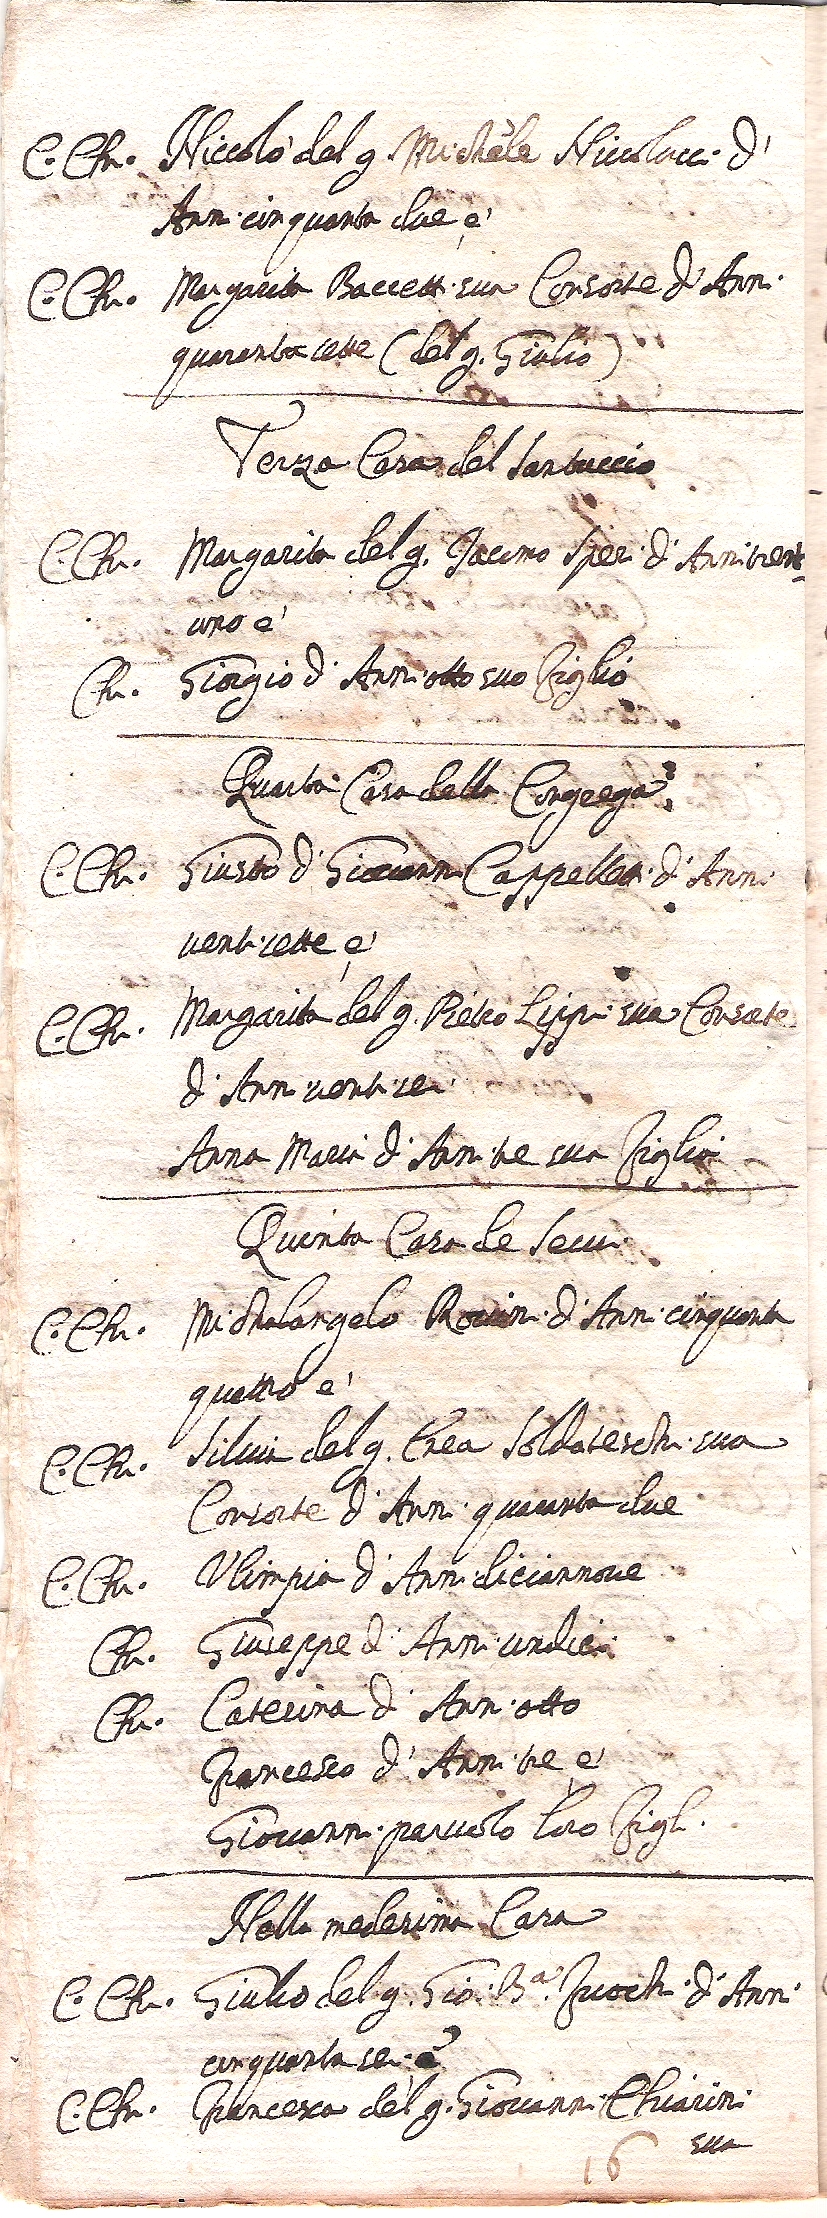 C. Chr. Niccolò del q. Michele Niccolucci d'
Anni cinquanta due, e'
C. Chr. Margarita Baccetti sua Consorte d'Anni
quaranta sette (del q. Giulio)
Terza Casa del Santuccio
C. Chr. Margarita del q. Jacomo Speri d'Anni trent=
uno e'
Chr. Giorgio d'Anni otto suo Figlio
Quarta Casa della Congrega.ne
C. Chr. Giusto di Giovanni Cappelletti d'Anni
venti sette, e'
C. Chr. Margarita del q. Pietro Lippi sua Consorte
d'Anni venti sei
Anna Maria d'Anni tre sua Figlia
Quinta Casa de
C. Chr. Michelangelo d'Anni cinquanta
quattro e'
C. Chr. Silvia del q. Enea Soldateschi sua
Consorte d'Anni quaranta due
C. Chr. Ulimpia d'Anni diciannove
Chr. Giuseppe d'Anni undici
Chr. Caterina d'Anni otto
Francesco d'Anni tre, e'
Giovanni parvolo loro Figli.
Nella medesima Casa
C. Chr. Giulio del q. Gio: B.a Fuochi d'Anni
cinquanta sei e'
C. Chr. Francesca del q. Giovanni Chiarini
sua
16